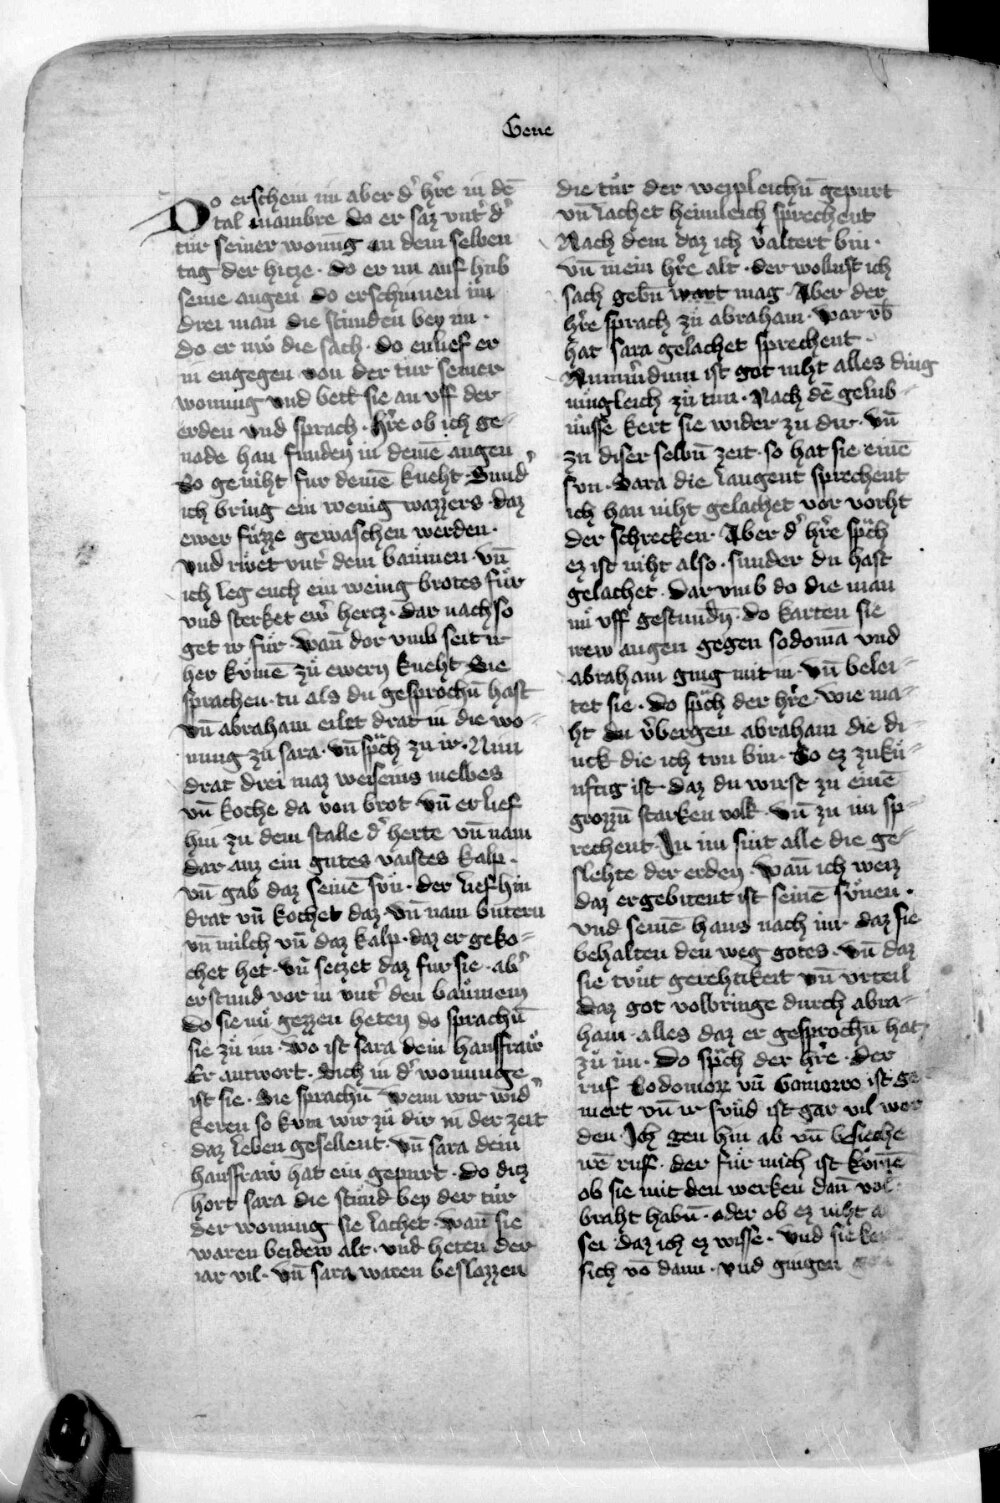 Gene
Do erschein im aber d' h're in dē
tal mambre do er saz vnt' d'
tür seiner wonūg an dem selben
tag der hitze · do er nu auf hub
seine augen do erschinen im
drei man die stunden bey im ·
do er nw die sach · do enlief er
in engegen von der tur seiner
wonung vnd bett sie an vff der
erden vnd sprach · h're ob ich ge-
nade han funden in deinē augen
so ge niht fur deinē kneht Sund'
ich bring ein wenig wazzers · daz
ewer füzze gewaschen werden ·
vnd rwet vnt' dem baümen · vn̄
ich leg euch ein wenig brotes für
vnd sterket ew' hercz · Dar nach so
get ir für · wan̄ dor vmb seit ir
her kvmē zü ewern kneht Sie
sprachen · tu als du gesprochn̄ hast
vn̄ abraham eilet drat in die wo-
nung zu sara · vn̄ spͣch zu ir · Nim
drat drei maz weiseins melbes
vn̄ koche da von brot · vn̄ er lief
hin zu dem stalle d' herte vn̄ nam
dar auz ein gutes vaistes kalp ·
vn̄ gab daz seinē svn · der lief hin
drat vn̄ kochet daz · vn̄ nam butern
vn̄ milch vn̄ daz kalp · daz er geko-
chet het · vn̄ seczet daz fur sie · ab'
er stund vor in vnt' den baümen
do sie nü gezzen heten do sprachn̄
sie zü im · wo ist sara dein hausfraw
Er antwort · Sich in d' wonunge
ist sie · Sie sprachn̄ wenn wir wid'
keren so kvm wir zü dir in der zeit
daz leben gesellent · vn̄ sara dein
hausfraw hat ein gepurt · do ditz
hort sara die stund bey der tür
der wonung sie lachet · wan̄ sie
waren beidew alt · vnd heten der
iar vil · vn̄ sara waren beslozzen
die tür der weipleichn̄ gepurt
vn̄ lachet heimleich sprechent
Nach dem daz ich v'altert bin ·
vn̄ mein h're alt · der wollust ich
sach gebn̄ wart mag · Aber der
h're sprach zü abraham · war vb
hat sara gelachet sprechent ·
ist got niht alles ding
mügleich zü tun · Nach dē gelub-
nüsse kert sie wider zu dir · vn̄
zu diser selbn̄ zeit · so hat sie einē
svn · Sara die laugent sprechent
ich han niht gelachet vor vorht
der schrecken · Aber d' h're spͣch
ez ist niht also · sunder du hast
gelachet · Dar vmb do die man
nü vff gestundn̄ · do karten sie
irew augen gegen sodomā vnd
abraham ging mit in · vn̄ belei-
tet sie · Do spͣch der h're wie ma-
ht du v'bergen abraham die di
uck die ich tvn bin · So ez zukü-
nftig ist · daz du wirst zu einē
grozzn̄ starken volk · vn̄ zu im sp-
rechent · In im sint alle die ge-
slehte der erden · wan̄ ich weiz
daz er gebitent ist seinē svnen ·
vnd seinē haus nach im · daz sie
behalten den weg gotes · vn̄ daz
sie tvnt gerehtikeit vn̄ vrteil
daz got volbringe durch abra-
ham · alles daz er gesprochn̄ hat
zü im · Do spͣch der h're · der
ruf Sodomor vn̄ Gamorro ist ge
mert vn̄ ir svnd ist gar vil wor
den · Ich gen hin ab vn̄ besiche
irē ruf · der für mich ist kvmē
ob sie mit den werken dan̄ vol
braht habn̄ · oder ob ez niht a
sei daz ich ez wisse · vnd sie ker
sich vō dann · vnd gingen